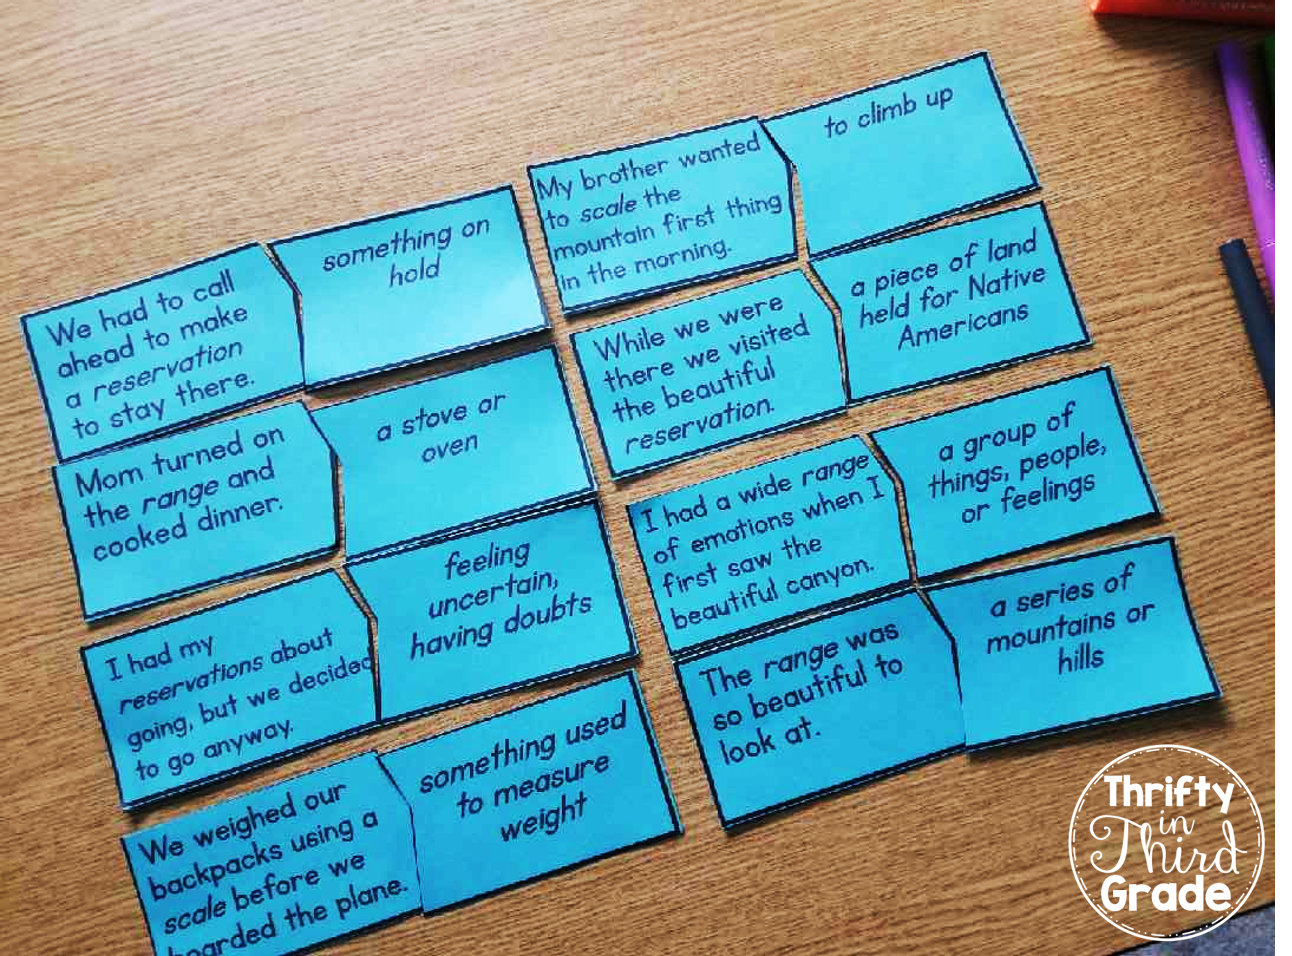 We had to call
ahead to make
a reservation
to stay there.
something on
hold
Mom turned on
the range and
cooked dinner.
a stove or
oven
I had my
reservations about
going, but we decided
to go anyway.
feeling
uncertain,
having doubts
We weighed our
backpacks using a
scale before we
boarded the plane.
something used
to measure
weight
My brother wanted
to scale the
mountain first thing
in the morning.
to climb up
While we were
there we visited
the beautiful
reservation.
a piece of land
held for Native
Americans
I had a wide range
of emotions when I
first saw the
beautiful canyon.
a group of
things, people,
or feelings
The range was
so beautiful to
look at.
a series of
mountains or
hills
Thrifty
in
Third
Grade